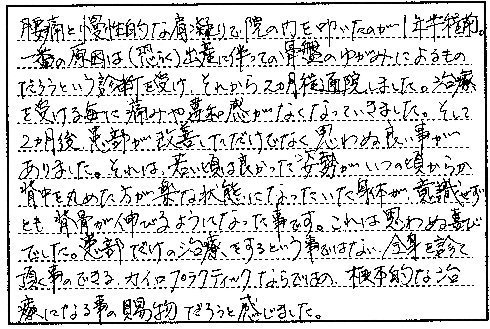 腰痛と慢性的な肩凝りで院の門を叩いたのが1年半程前。
一番の原因は(恐らく)出産に伴っての骨盤のゆがみによるもの
だろうという診断を受け、それから2ヵ月程通院しました。治療
を受ける毎に痛みや違和感がなくなっていきました。そして
2ヵ月後、患部が改善しただけでなく思わぬ良い事が
ありました。それは、若い頃は良かった姿勢がいつの頃からか
背中を丸めた方が楽な状態になっていた身体が、意識せず
とも背骨が伸びるようになった事です。これは思わぬ喜び
でした。患部だけの治療をするという事ではない、全身を診て
頂く事のできるカイロプラクティックならではの、根本的な治
療になる事の賜物だろうと感じました。